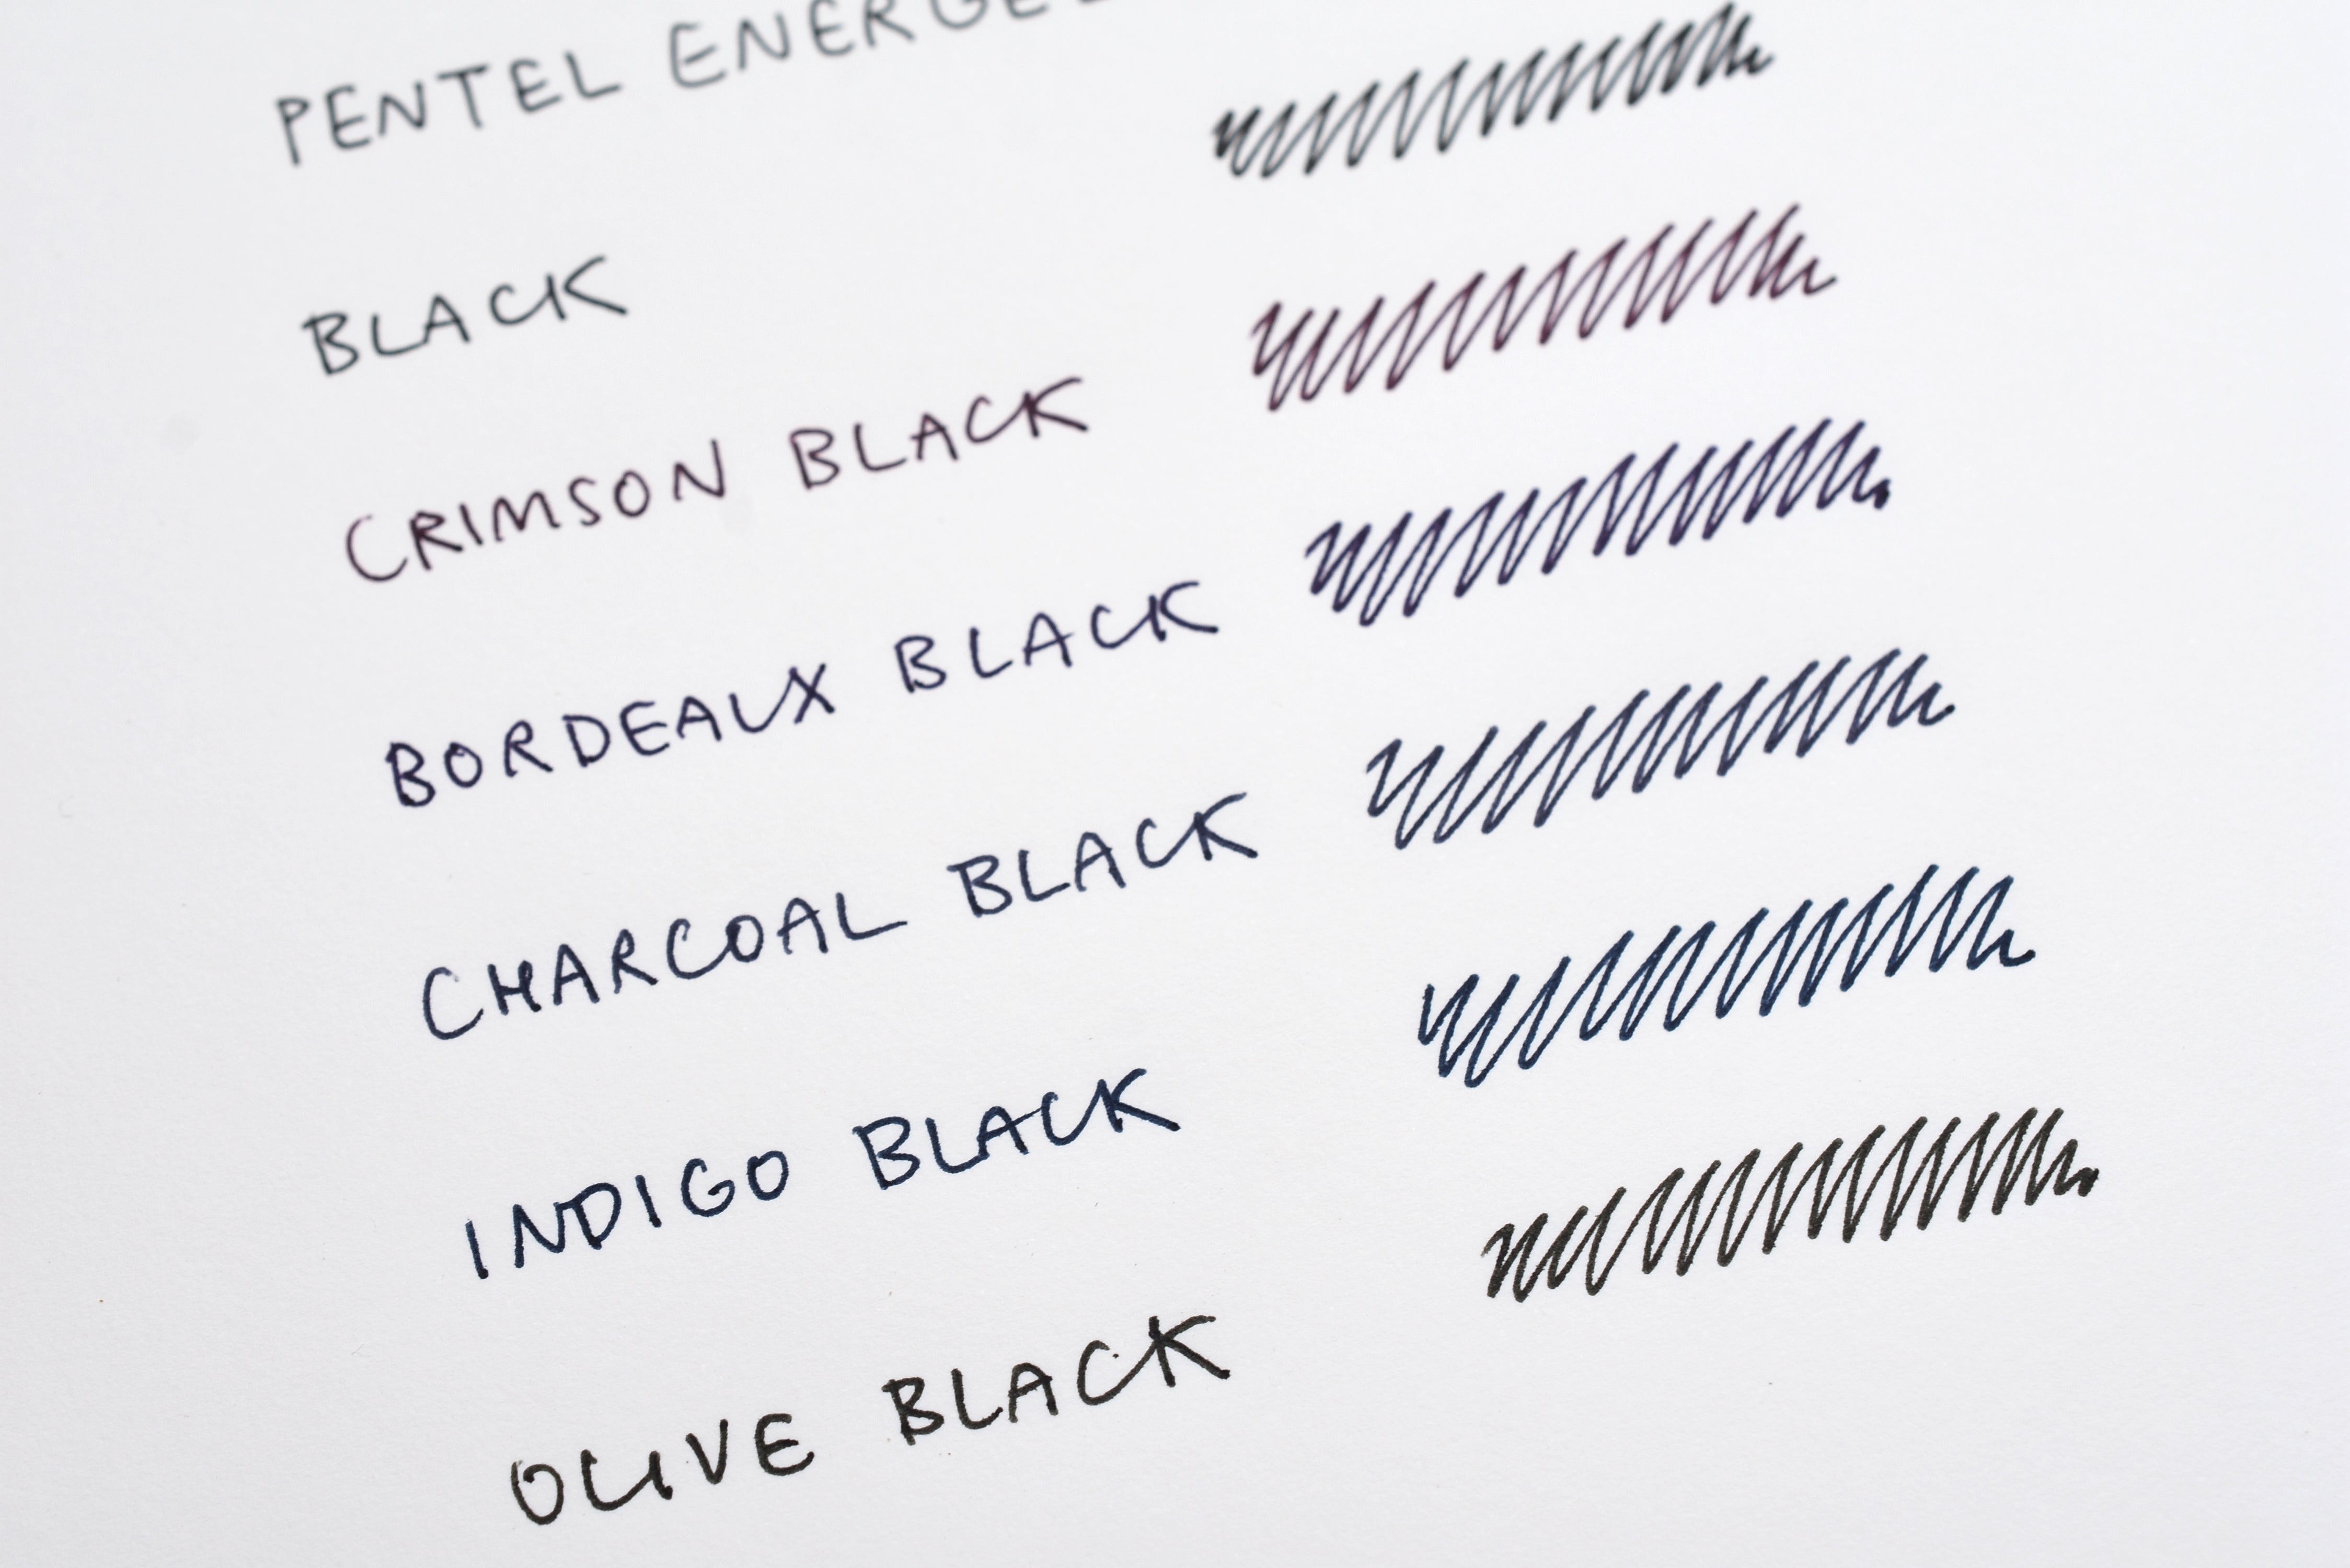 PENTEL ENERGEL
BLACK
CRIMSON BLACK
BORDEAUX BLACK
CHARCOAL BLACK
INDIGO BLACK
OLIVE BLACK